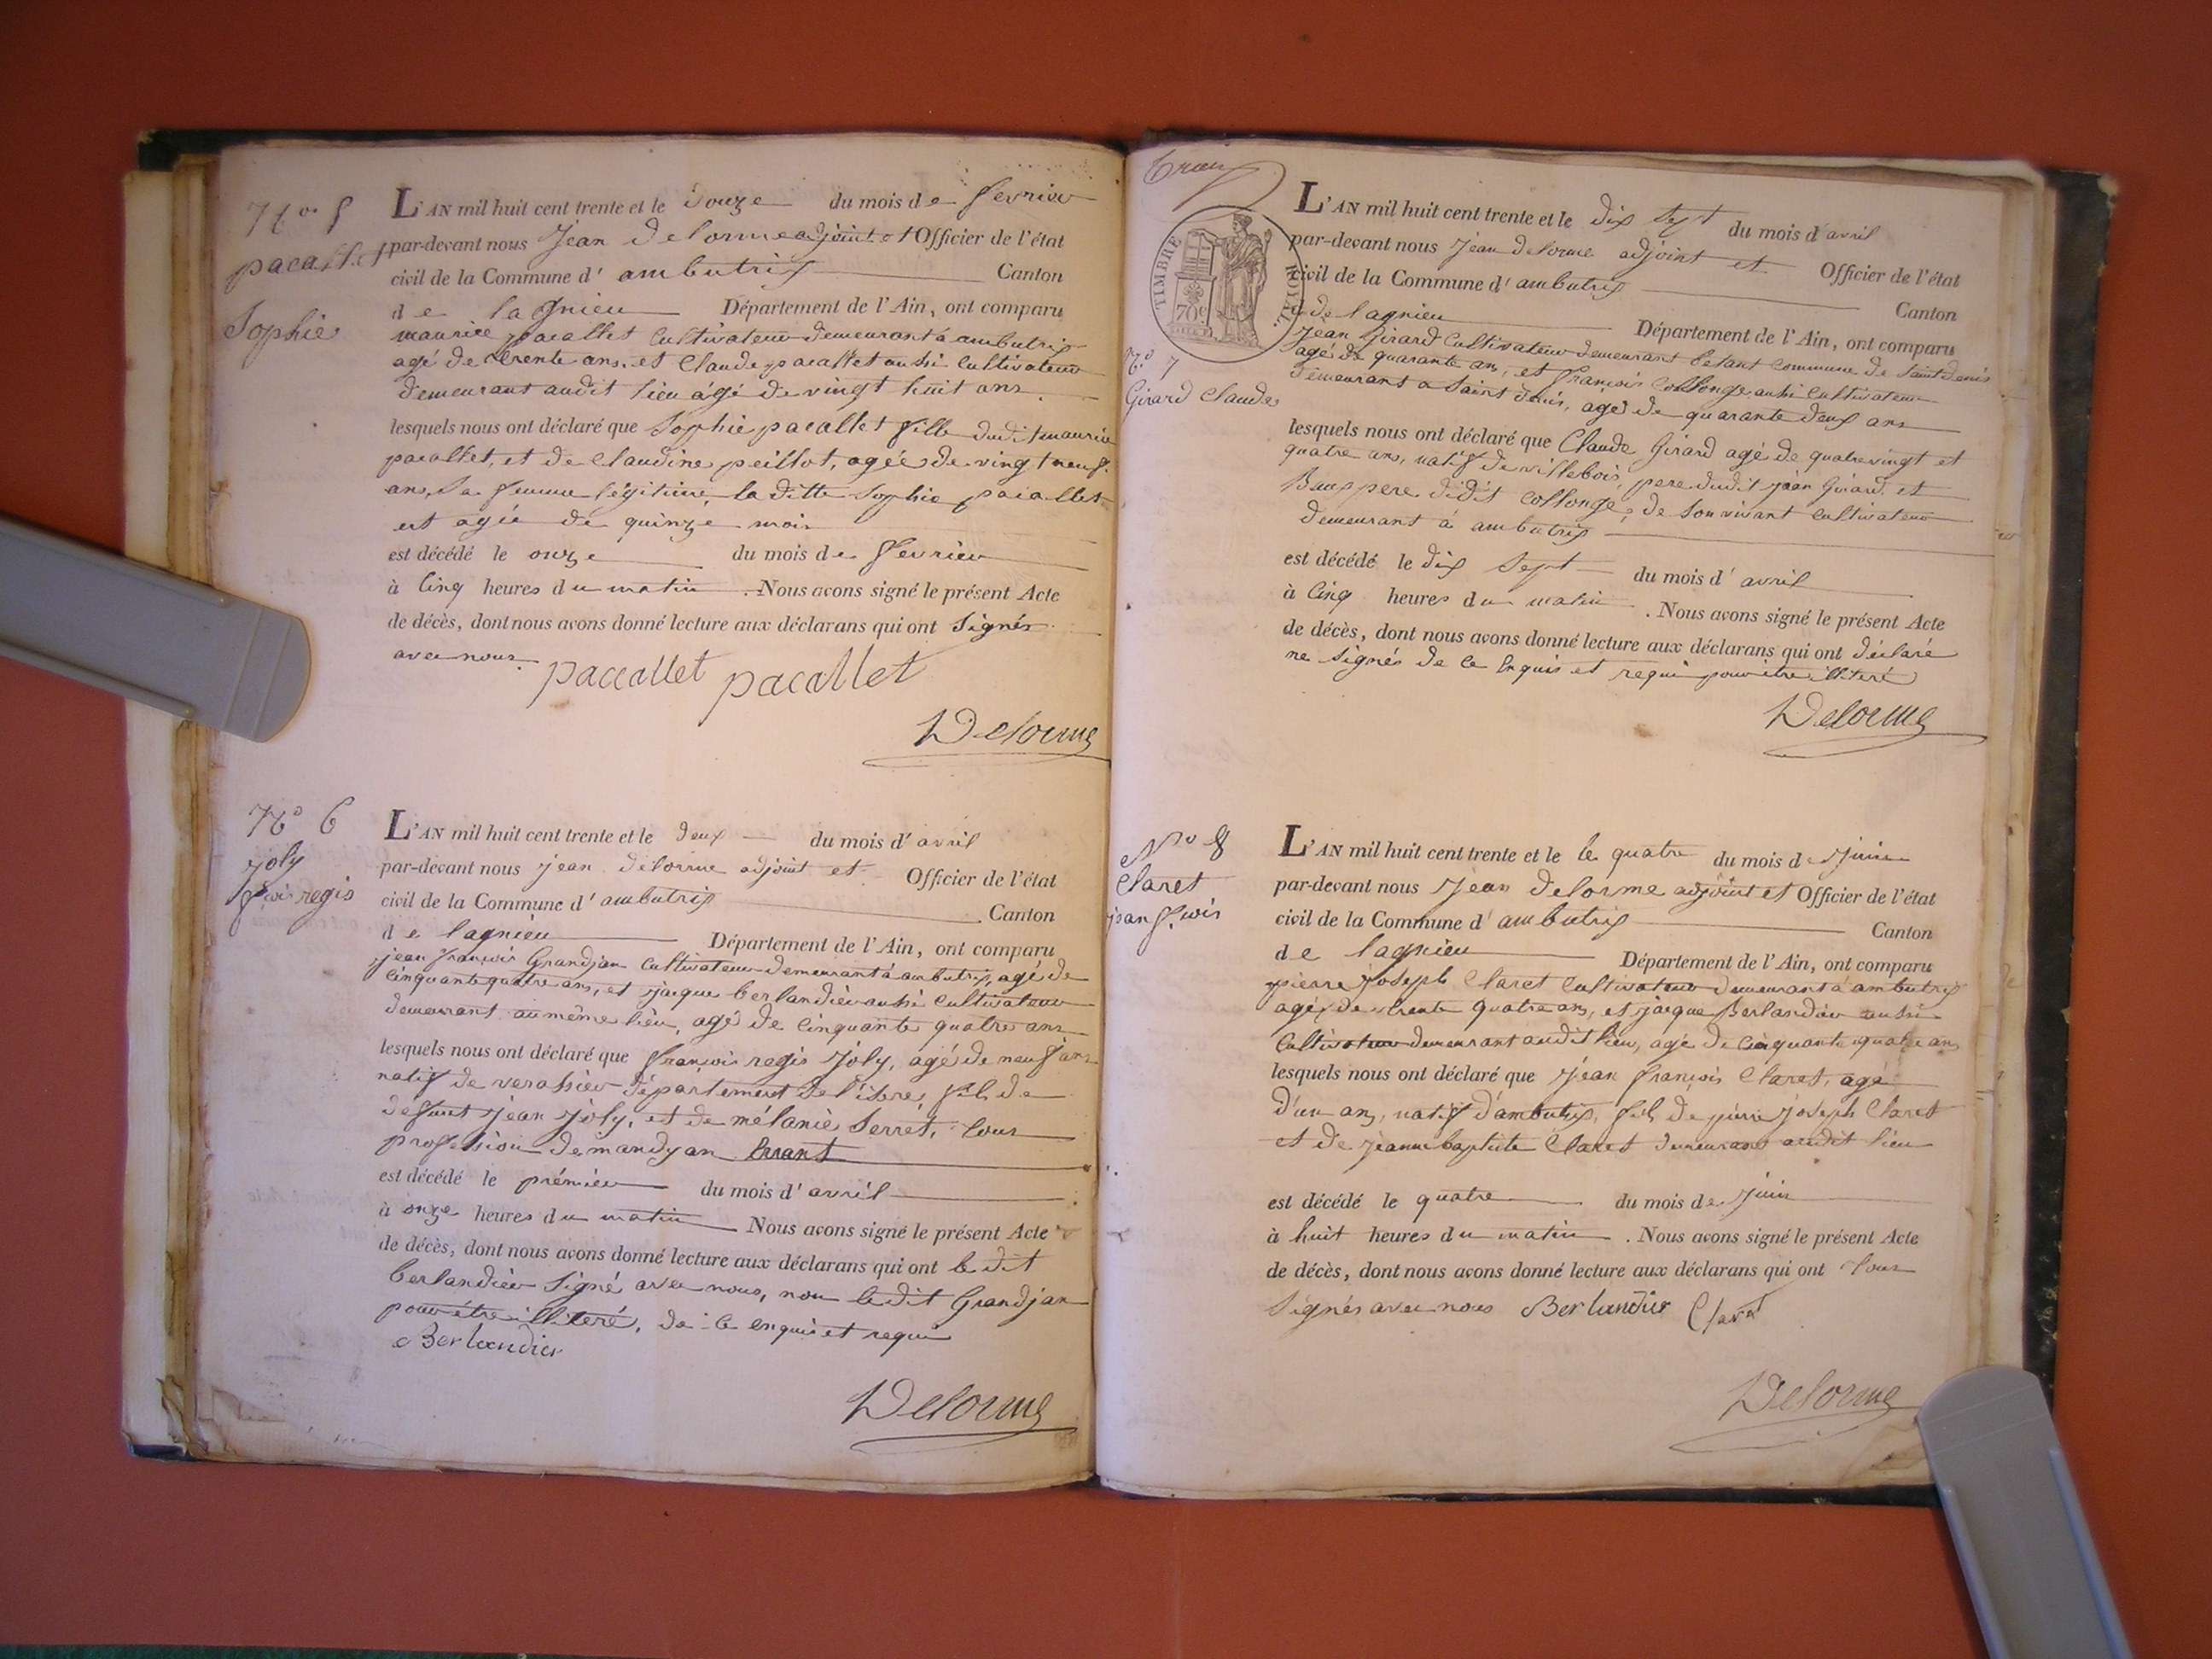 N° 5
pacallet
Sophie
L'AN mil huit cent trente et le Douze du mois de fevrier
par-devant nous Jean Delorme adjoint et Officier de l'état
civil de la Commune d' ambutrix Canton
de lagnieu Département de l'Ain, ont comparu
maurice pacallet Cultivateur demeurant à ambutrix
agé de trente ans, et Claude pacallet aussi Cultivateur
demeurant audit lieu âgé de vingt huit ans
lesquels nous ont déclaré que Sophie pacallet fille dudit maurice
pacallet, et de Claudine peillot, agée de vingt neuf
ans, Sa femme légitime, la ditte Sophie pacallet
est agée de quinze mois
est décédé le onze du mois de fevrier
à Cinq heures du matin . Nous avons signé le présent Acte
de décès, dont nous avons donné lecture aux déclarans qui ont Signés
avec nous
paccallet pacallet
Delorme
N° 6
Joly
fçois regis
L'AN mil huit cent trente et le Deux du mois d' avril
par-devant nous Jean Delorme adjoint et Officier de l'état
civil de la Commune d' ambutrix Canton
de lagnieu Département de l'Ain, ont comparu
jean François Grandjan Cultivateur demeurant à ambutrix, agé de
Cinquante quatre ans, et jacque berlandier aussi Cultivateur
demeurant au même lieu, agé de Cinquante quatre ans
lesquels nous ont déclaré que françois regis Joly, agé de neuf ans
natif de verassieu département de l'isere, fils de
defunt Jean Joly, et de mélanie Serret, tous
profession de mandyan Errant
est décédé le prémier du mois d' avril
à onze heures du matin Nous avons signé le présent Acte
de décès, dont nous avons donné lecture aux déclarans qui ont le dit
berlandier Signé avec nous, non ledit Grandjan
pour être illiteré, de ce enquis et requi
Berlandier
Delorme
TIMBRE ROYAL.
70c
N° 7
Girard Claude
L'AN mil huit cent trente et le dix Sept du mois d'avril
par-devant nous Jean Delorme adjoint et Officier de l'état
civil de la Commune d' ambutrix Canton
de lagnieu Département de l'Ain, ont comparu
Jean Girard Cultivateur demeurant betant Commune de Saint denis
agé de quarante ans, et François Collonge aussi Cultivateur
demeurant a Saint denis, agé de quarante deux ans
lesquels nous ont déclaré que Claude Girard agé de quatrevingt et
quatre ans, natif de villebois, pere dudit jean Girard et
Beaupere didit Collonge, de Son vivant Cultivateur
demeurant à ambutrix
est décédé le dix Sept du mois d' avril
à Cinq heures du matin . Nous avons signé le présent Acte
de décès, dont nous avons donné lecture aux déclarans qui ont déclaré
ne Signés de ce Enquis et requi pour être illiteré
Delorme
N° 8
Claret
jean fçois
L'AN mil huit cent trente et le le quatre du mois de Juin
par-devant nous Jean Delorme adjoint et Officier de l'état
civil de la Commune d' ambutrix Canton
de lagnieu Département de l'Ain, ont comparu
pierre Joseph Claret Cultivateur demeurant à ambutrix
agé de trente quatre ans, et jacque Berlandier aussi
Cultivateur demeurant audit lieu, agé de Cinquante quatre ans
lesquels nous ont déclaré que Jéan françois Claret, agé
d'un an, natif d'ambutrix, fils de pierre Joseph Claret
et de jeanne baptiste Claret demeurans audit lieu
est décédé le quatre du mois de Juin
à huit heures du matin . Nous avons signé le présent Acte
de décès, dont nous avons donné lecture aux déclarans qui ont tous
Signés avec nous Berlandier Claret
Delorme